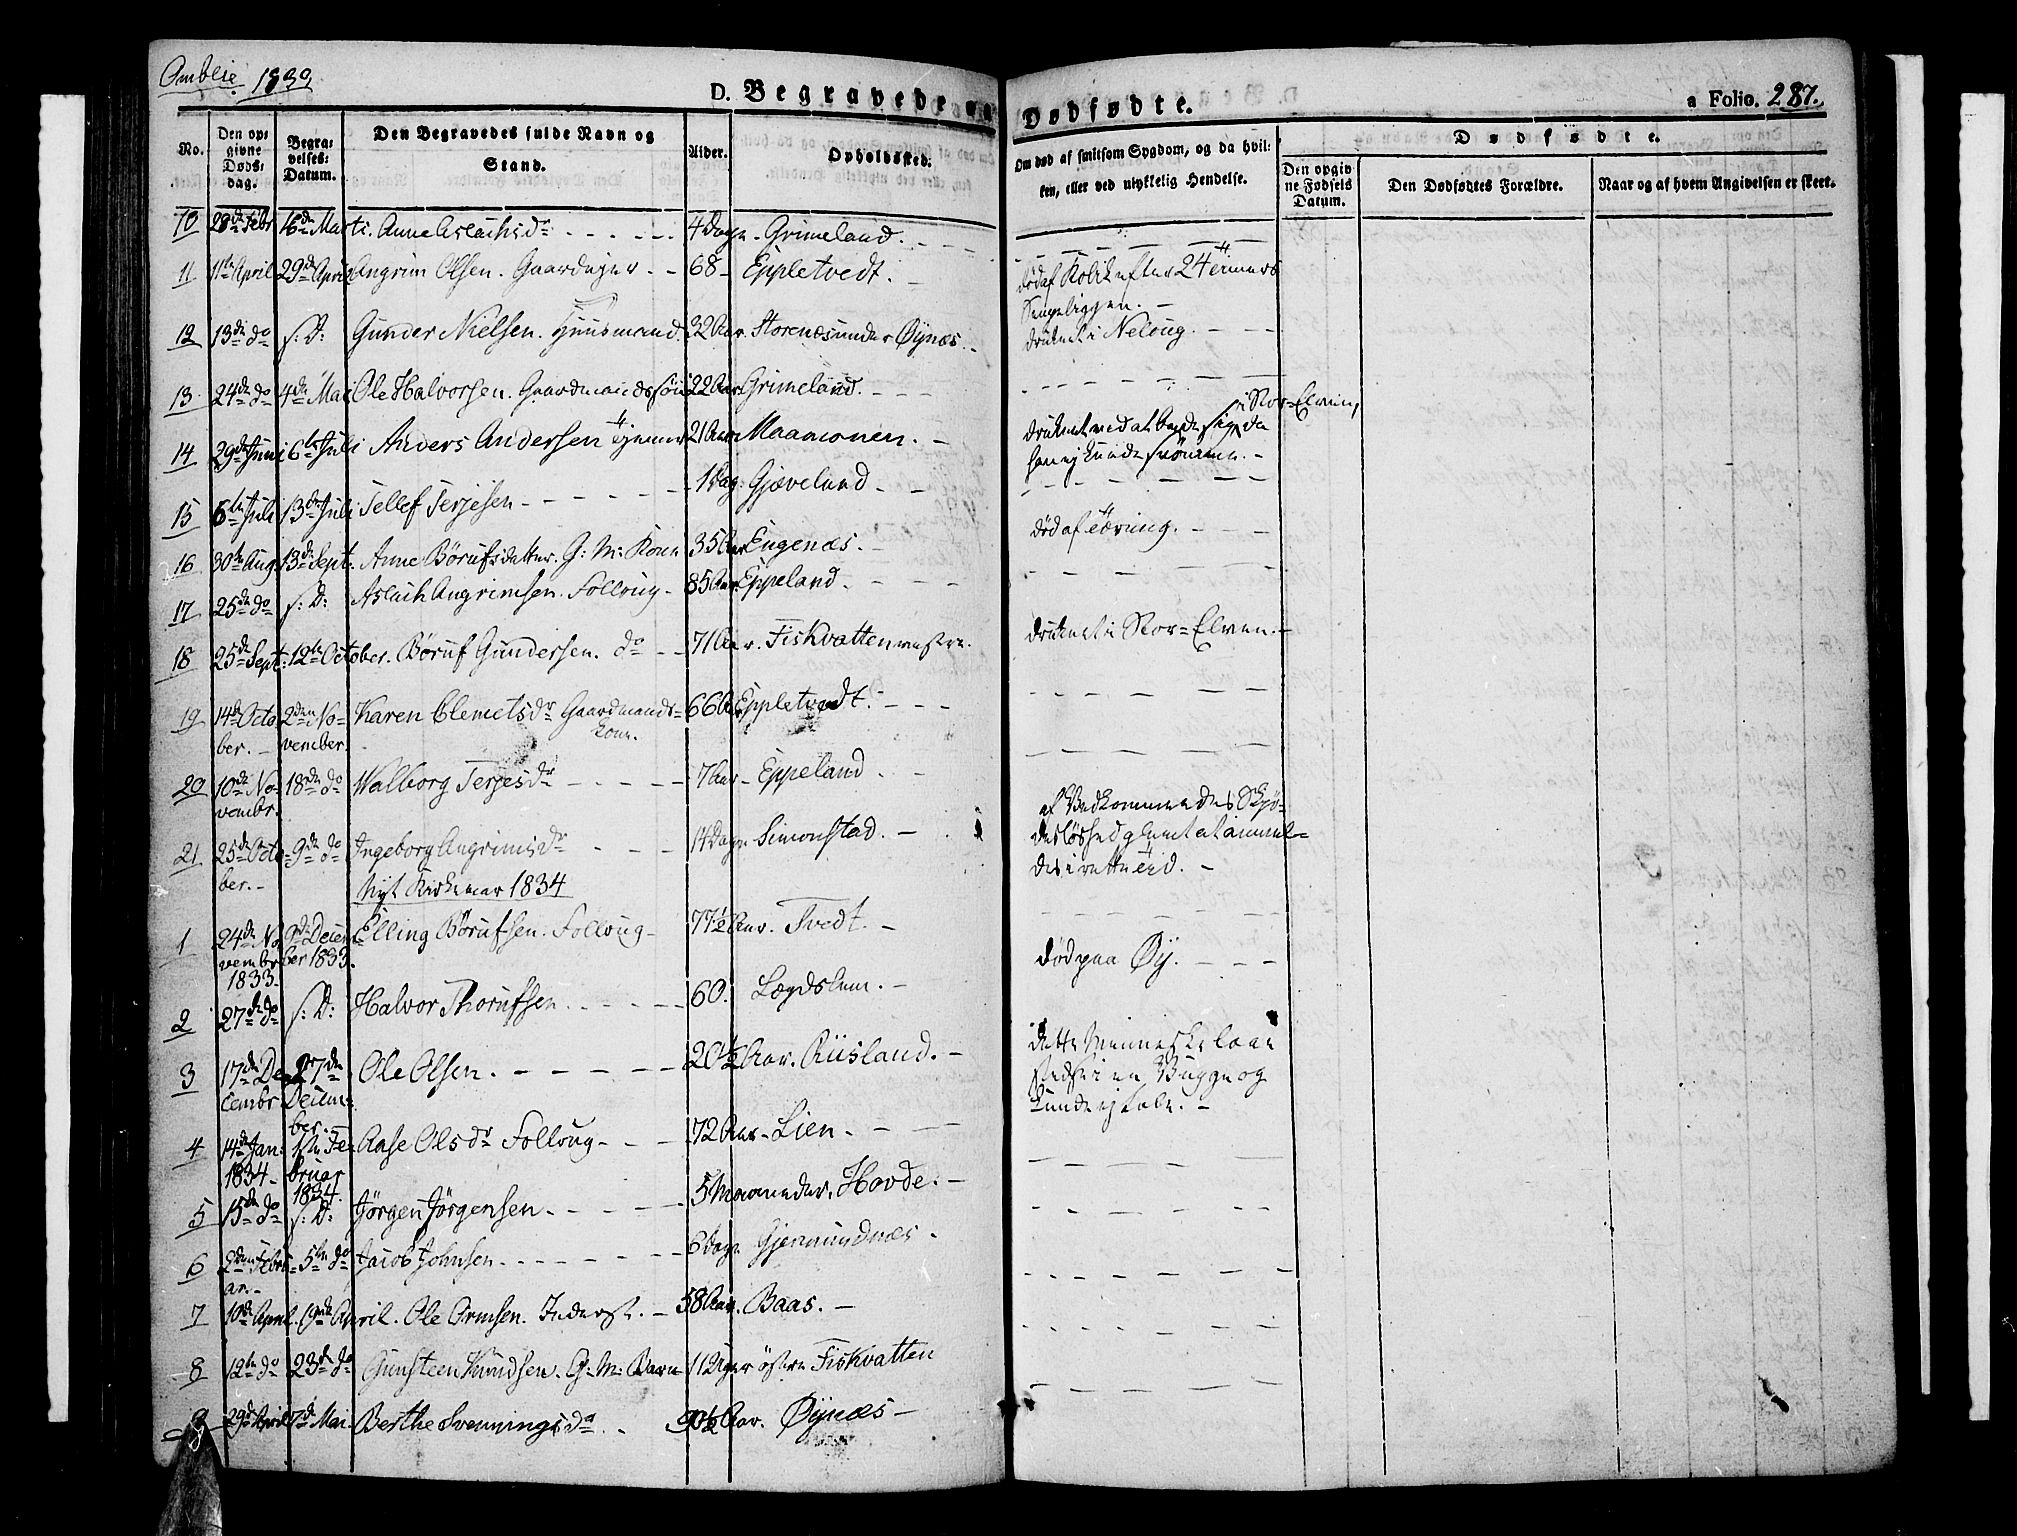 Omblie 1833
D. Begravede og Dødfødte. a Folio. 287.
No. Den opgivne Dødsdag. Begravelses-Datum. Den Begravedes fulde Navn og Stand. Alder. Opholdssted. Om død af smitsom Sygdom, og da hvilken, eller ved ulykkelig Hendelse. Dødfødte.
Den opgivne Fødsels Datum. Den Dødfødtes Forældre. Naar og af hvem Angivelsen er skeet.
10 28de Febr 16de Marti. Anne Aslachsdr 4 Dage. Grimeland.
11 11te April 29de April Angrim Olsen. Gaardejer 68 Eppletvedt. død af Kolik efter 24 Timers Sengeliggen.
12 13de do s: D: Gunder Nielsen. Huusmand. 32 Aar. Storenæs under Øynæs. druknet i Neloug.
13 24de do 4de Mai Ole Halvorsen. Gaardmandssøn 22 Aar Grimeland.
14 29de Juni 6te Juli Anders Andersen 21 Aar Maamonen. druknet ved at bade sig i Stor-Elven, da han ej kunde svømme.
15 6te Juli 13de Juli Tellef Terjesen 1 Dag. Gjæveland
16 30te Aug. 13de Sept. Anne Børufsdatter. G: M: Kone 35 Aar Eugenæs. død af Tæring.
17 25de do s: D: Aslach Angrimsen. Folloug 85 Aar Eppeland.
18 25de Sept: 12te October. Børuf Gundersen. do 71 Aar. Fiskvatten vestre. druknet i Stor-Elven.
19 14de October. 2den November. Karen Clemetsdr Gaardmands-Kone. 66 Aar Eppletvedt.
20 10de Novembr. 18de do Walborg Terjesdr 7 Aar Eppeland
21 25de October. 9de do Ingeborg Angrimsdr 14 Dage Simonstad. af Vedkommendes Skjødesløshed glemt at anmeldes i rette Tid.
Nyt Kirkeaar 1834
1 24de Novembr 1833. 9de December 1833. Elling Børufsen. Folloug 77½ Aar. Tvedt.
2 27de do s: D: Halvor Thorufsen 60. Lægdslem. død paa Øy.
3 17de Decembr 27de December. Ole Olsen. 20½ Aar. Riisland. dette Menneske laae stedse i en Vugge og kunde ej tale.
4 14de Jan: 1834 1ste Februar 1834. Aase Olsdr Folloug 72 Aar Lien.
5 15de do s: D: Jørgen Jørgensen. 5 Maaneder. Hovde.
6 2den Februar. 5te do Jacob Johnsen 6 Dage Gjermundnæs.
7 10de April. 19de April. Ole Ormsen. Inderst. 58 Aar. Baas.
8 12te do 23de do Gunsteen Knudsen. G: M: Barn 11 Uger østre Fiskvatten
9 29de April 7de Mai. Berthe Svenningsda 90½ Aar. Øynæs